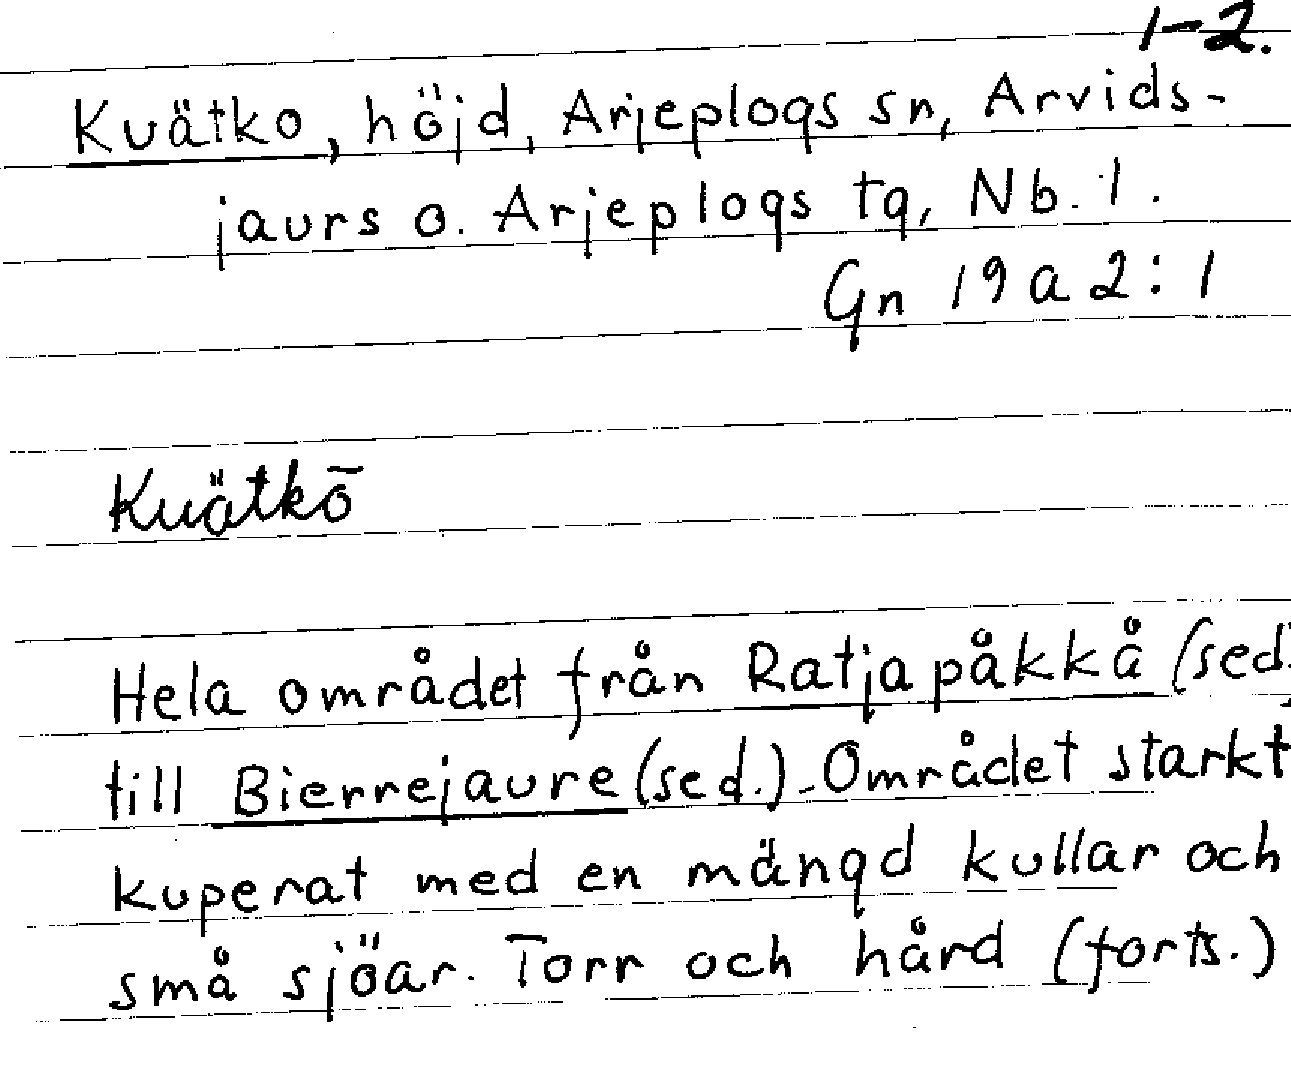 1-2.
Kuätko, höjd, Arjeplogs sn, Arvids-
jaurs o. Arjeplogs tg, Nb. l.
Gn 19 a 2:1
Kuätkō
Hela området från Ratjapåkkå (sed.)
till Bierrejaure (sed.). Området starkt
kuperat med en mängd kullar och
små sjöar. Torr och hård (forts.)